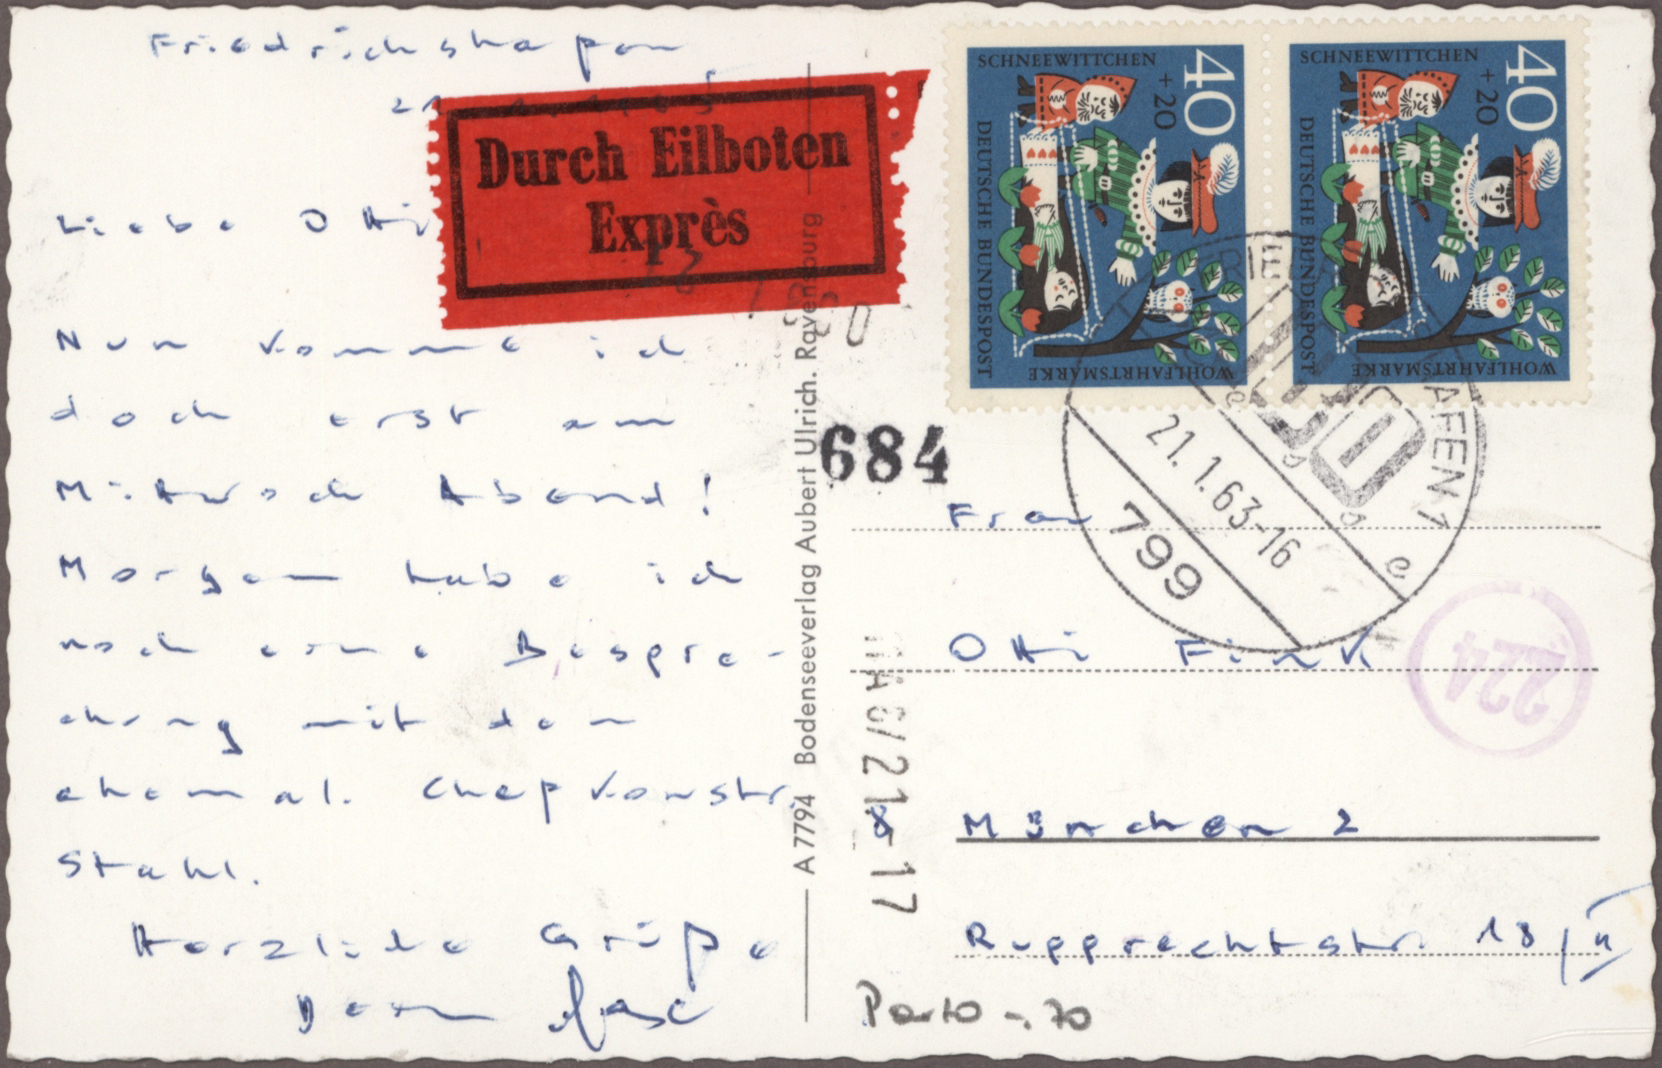 Friedrichshafen
21.
Durch Eilboten
Exprès
Liebe Otti
Nun komme ich
doch erst am
Mittwoch Abend!
Morgen habe ich
noch eine Bespre-
chung mit dem
ehemal. Chefkonstr.
Stahl.
Herzliche Grüße
Dein
A 7794 Bodenseeverlag Aubert Ulrich. Ravensburg
SCHNEEWITTCHEN
40
+20
DEUTSCHE BUNDESPOST
WOHLFAHRTSMARKE
SCHNEEWITTCHEN
40
+20
DEUTSCHE BUNDESPOST
WOHLFAHRTSMARKE
21.1.63-16
799
e
684
224
Frau
Otti Fink
München 2
Rupprechtstr. 18/II
21 17
Porto -.70